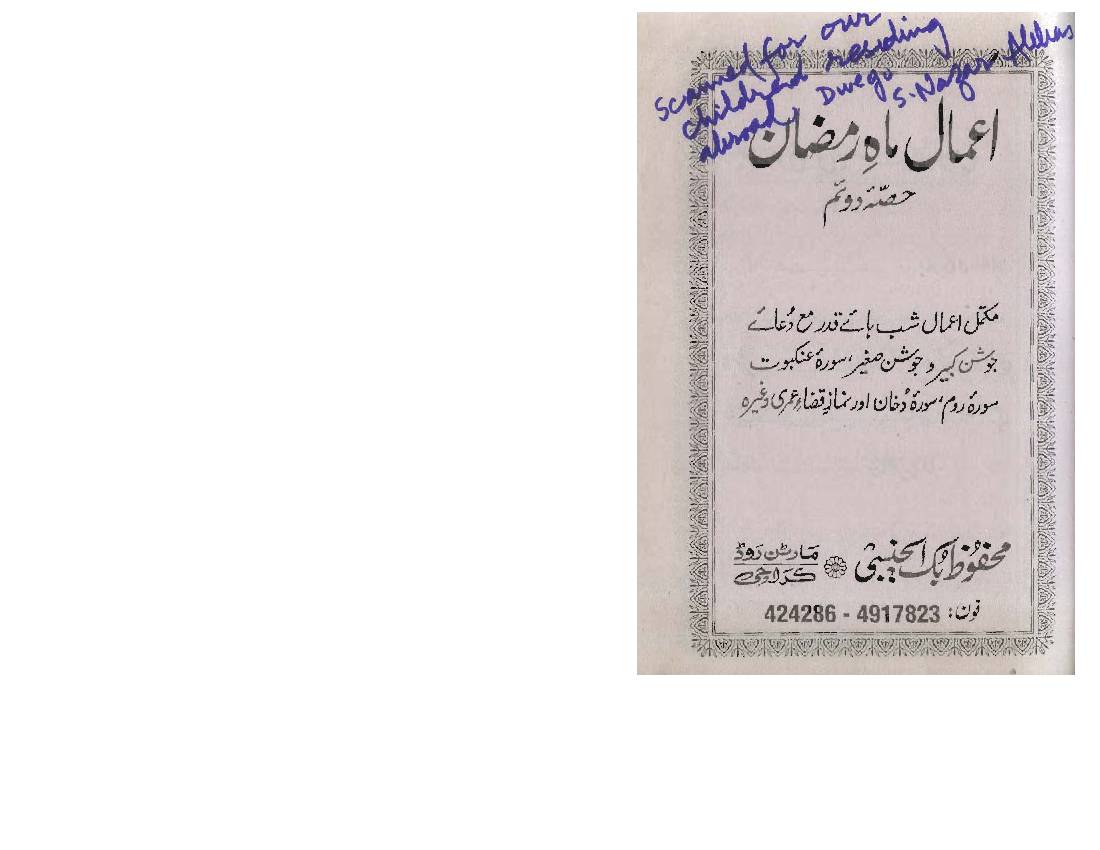 Scanned for our
children residing
abroad, Duego
S. Nazar Abbas
اعمال ماہِ رمضان
حصّۂ دوئم
مکمل اعمال شب ہائے قدر مع دُعائے
جوشن کبیر و جوشن صغیر، سورۂ عنکبوت
سورۂ روم، سورۂ دُخان اور نماز قضاءِ عمری وغیرہ
محفوظ بک ایجنسی مارٹن روڈ
کراچی
فون: 4917823 - 424286